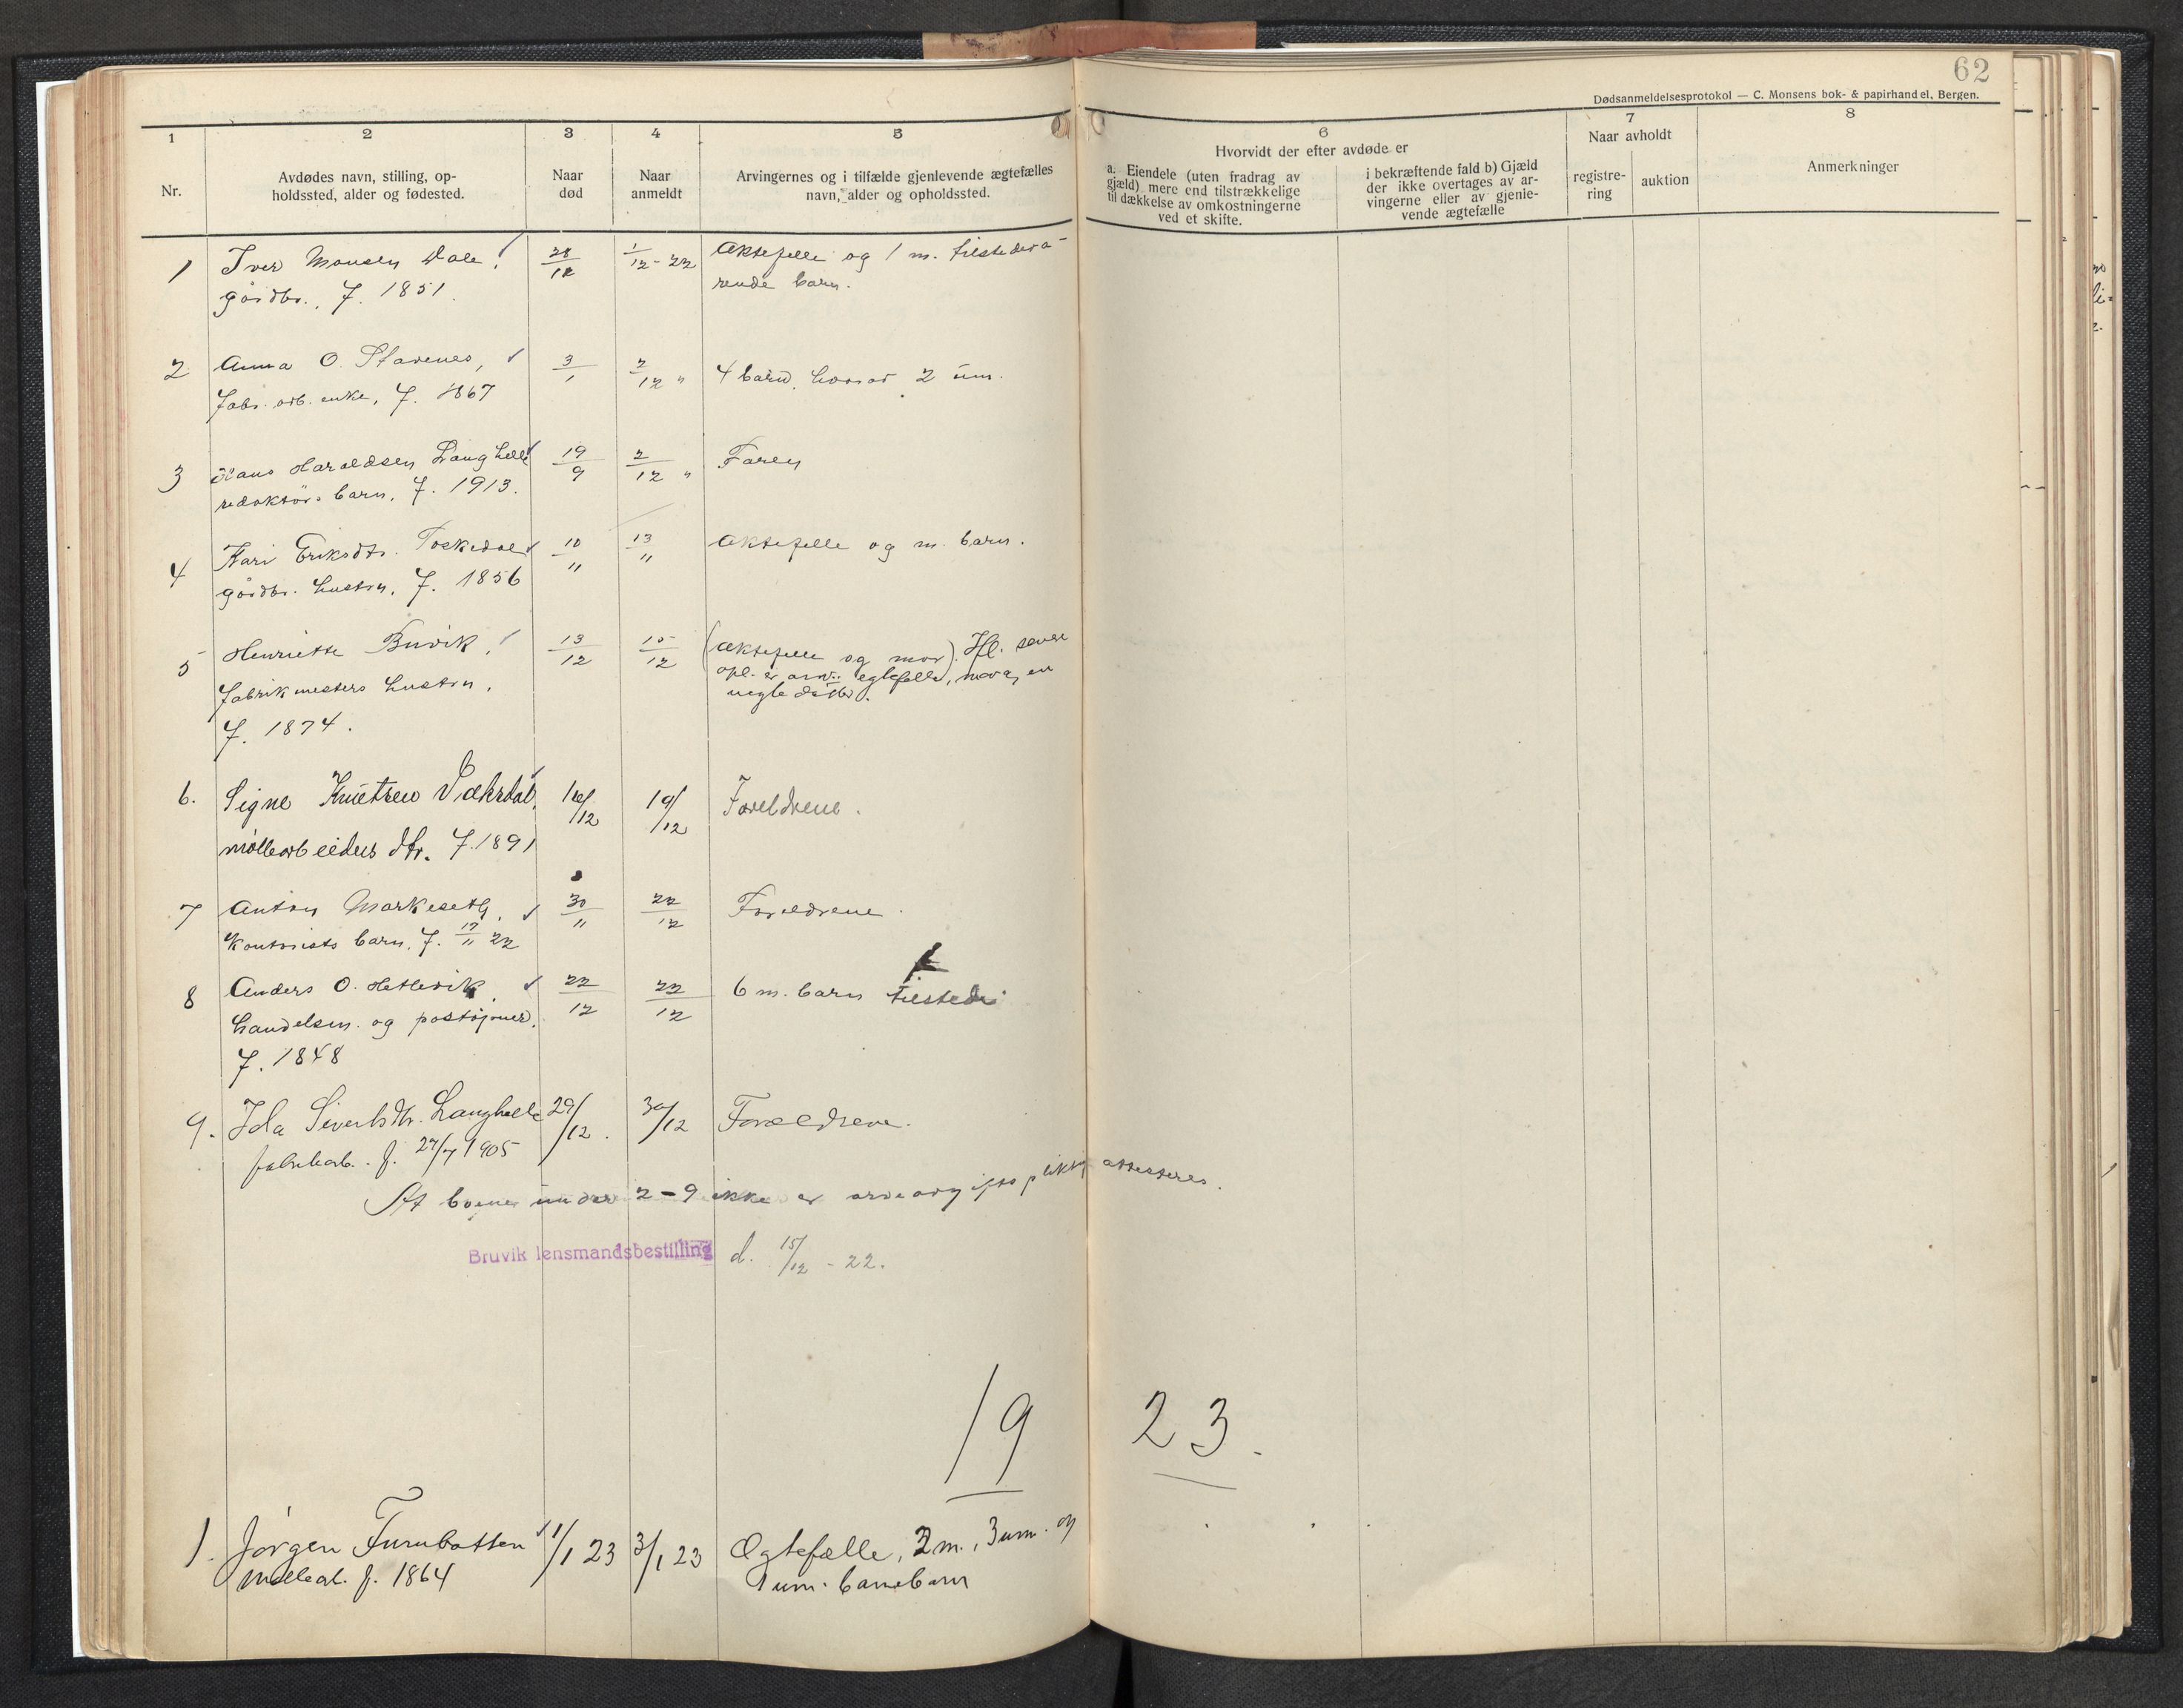 62
Dødsanmeldelsesprotokol — C. Monsens bok- & papirhandel, Bergen.
1
2
3
4
5
6
7
8
Nr.
Avdødes navn, stilling, op-
holdssted, alder og fødested.
Naar
død
Naar
anmeldt
Arvingernes og i tilfælde gjenlevende ægtefælles
navn, alder og opholdssted.
Hvorvidt der efter avdøde er
a. Eiendele (uten fradrag av
gjæld) mere end tilstrækkelige
til dækkelse av omkostningerne
ved et skifte.
i bekræftende fald b) Gjæld
der ikke overtages av ar-
vingerne eller av gjenle-
vende ægtefælle
Naar avholdt
registre-
ring
auktion
Anmerkninger
1 Iver Monsen Dale, 28/12 1/12-22 Æktefelle og 1 m. tilstedevæ-
gårdbr., f. 1851. rende barn.
2 Anna O. Stavenes, 3/1 2/12 " 4 barn, hvorav 2 um.
fabr. arb. enke, f. 1867
3 Hans Haraldsen Langhelle 19/9 2/12 " Faren
redaktørs barn, f. 1913.
4 Kari Eriksdtr. Toskedal 10/11 13/11 Æktefelle og m. barn.
gårdbr. hustru, f. 1856
5 Henriette Buvik, 13/12 15/12 (Æktefelle og mor). Ifl. senere
fabrikmesters hustru, opl. er arv.: egtefelle, mor og en
f. 1874. uegte datter.
6. Signe Knutsen Vaksdal, 16/12 19/12 Foreldrene.
møllearbeiders dtr. f. 1891
7 Anton Markeseth, 30/11 22/12 Foreldrene.
Kontorists barn, f. 17/11 22
8 Anders O. Hetlevik, 22/12 22/12 6 m. barn tilstede
handelsm. og poståpner,
f. 1848
9. Ida Sivertsdtr. Langhelle 29/12. 30/12 Foreldrene.
fabrikarb. f. 27/7 1905
At boene under 2-9 ikke er arveavgiftspliktig attesteres.
Bruvik lensmandsbestilling d. 15/12 - 22.
19 23.
1. Jørgen Furubotten 1/1 23 3/1 23 Ægtefælle, 2 m., 3 um. og
møllearb. f. 1864 1 um. barnebarn